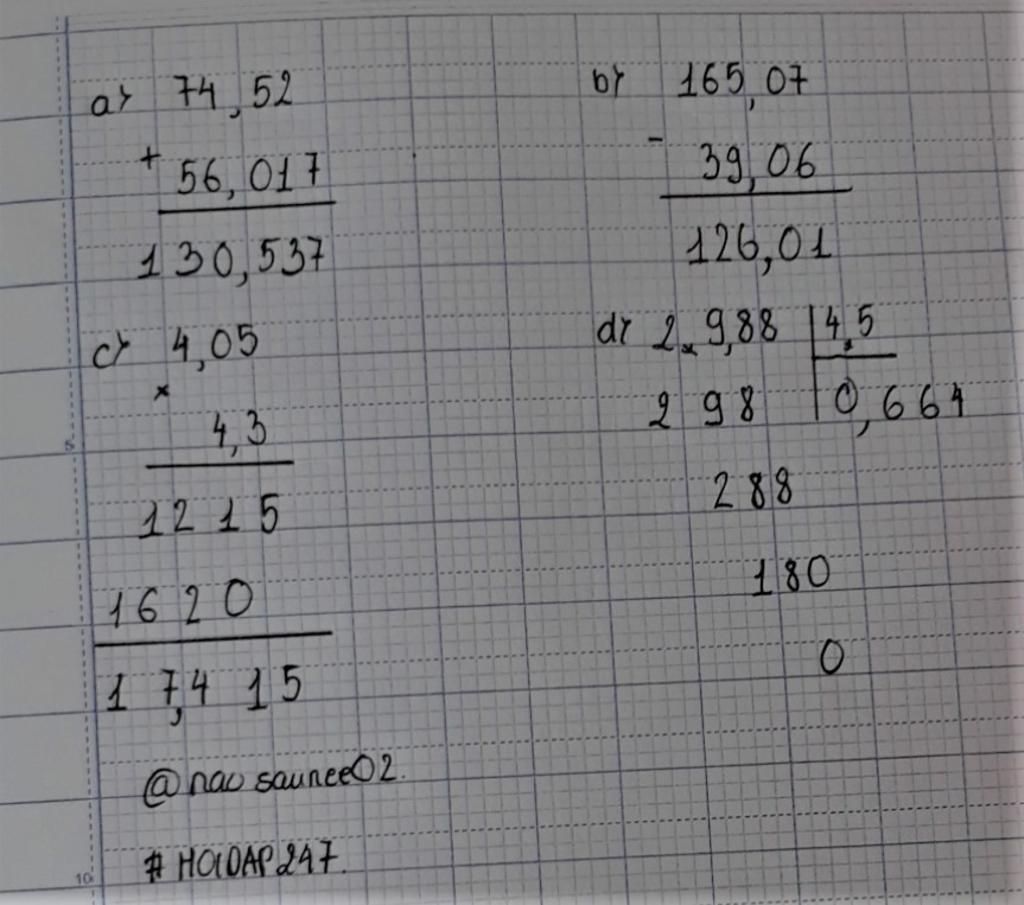 a) 74,52
+
56,017
130,537
b) 165,07
-
39,06
126,01
c) 4,05
x
4,3
1215
1620
17,415
d) 2x9,88 4,5
298 0,664
288
180
0
@nau saunee02.
#HOIDAP247.
5
10